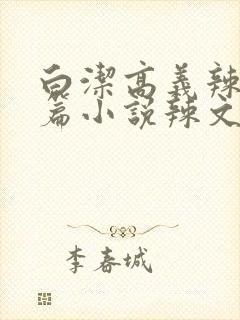 白潔高義辣
篇小说辣文
李春城